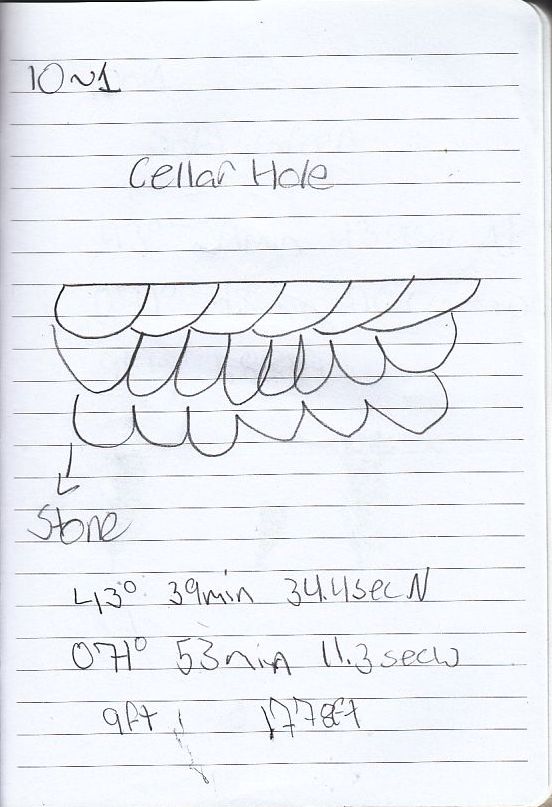 10~1
Cellar Hole
Stone
43° 39min 34.4sec N
071° 53min 11.3sec W
9ft 1778ft